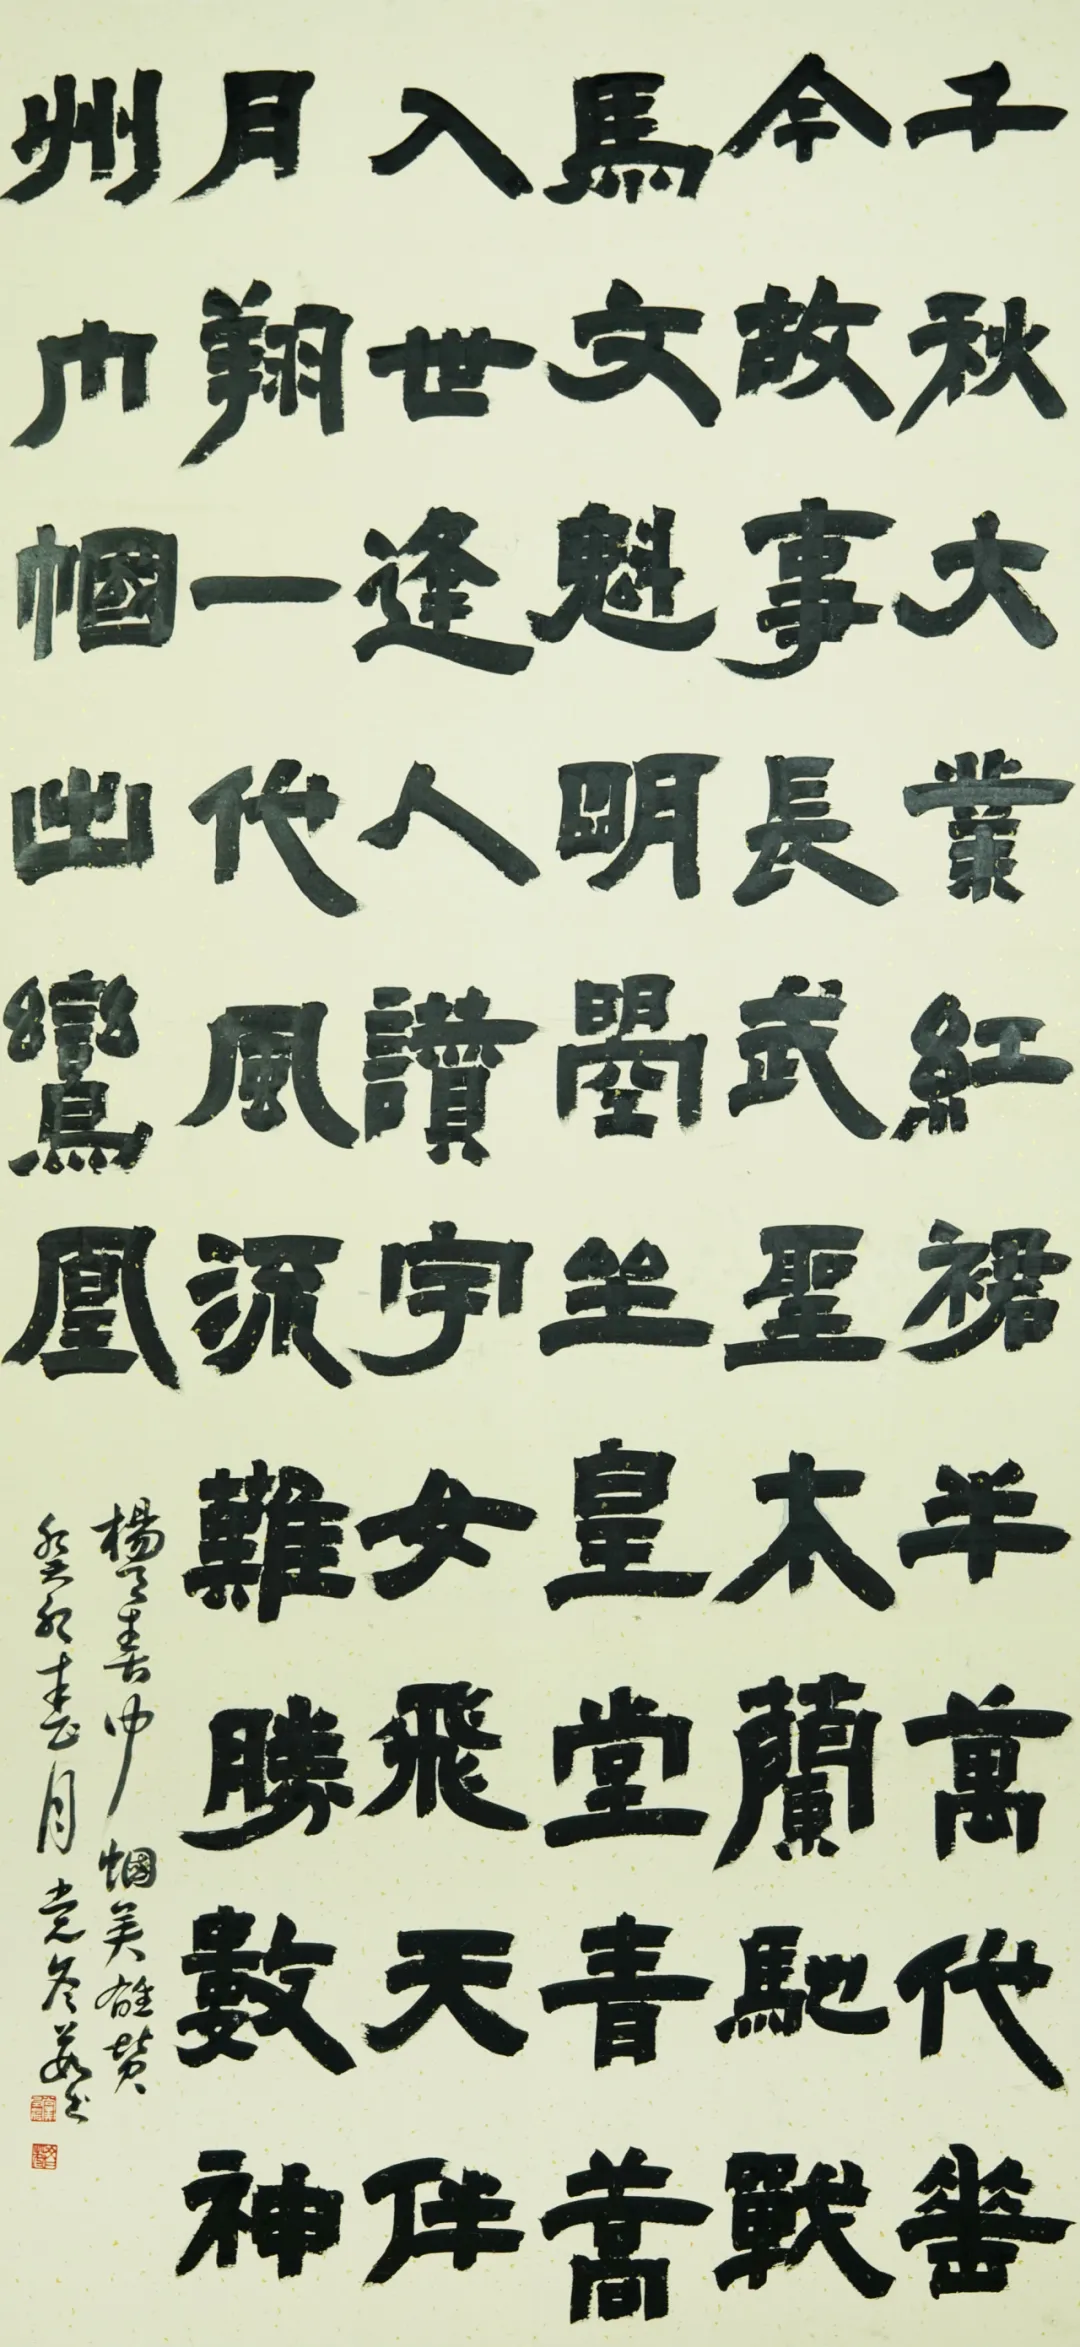 千秋大業紅裙半萬代垂
今故事長武聖木蘭馳戰
馬文魁明曌坐皇堂青蒿
入世逢人讚宇女飛天伴
月翔一代風流難勝數神
州巾幗出鸞凰
楊 巾幗英雄贊
癸卯春月 党 书